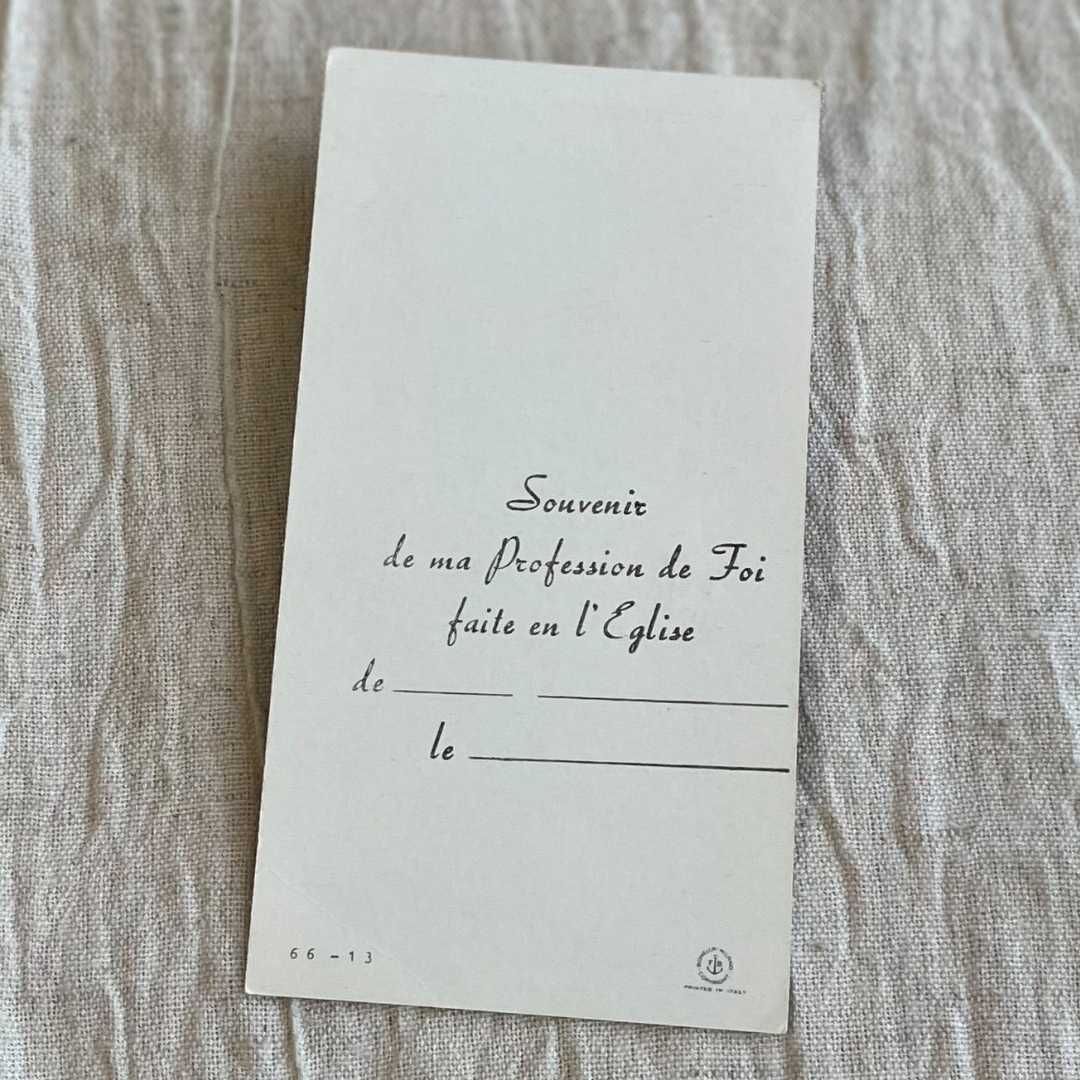 Souvenir
de ma Profession de Foi
faite en l'Eglise
de
le
66-13
PRINTED IN ITALY